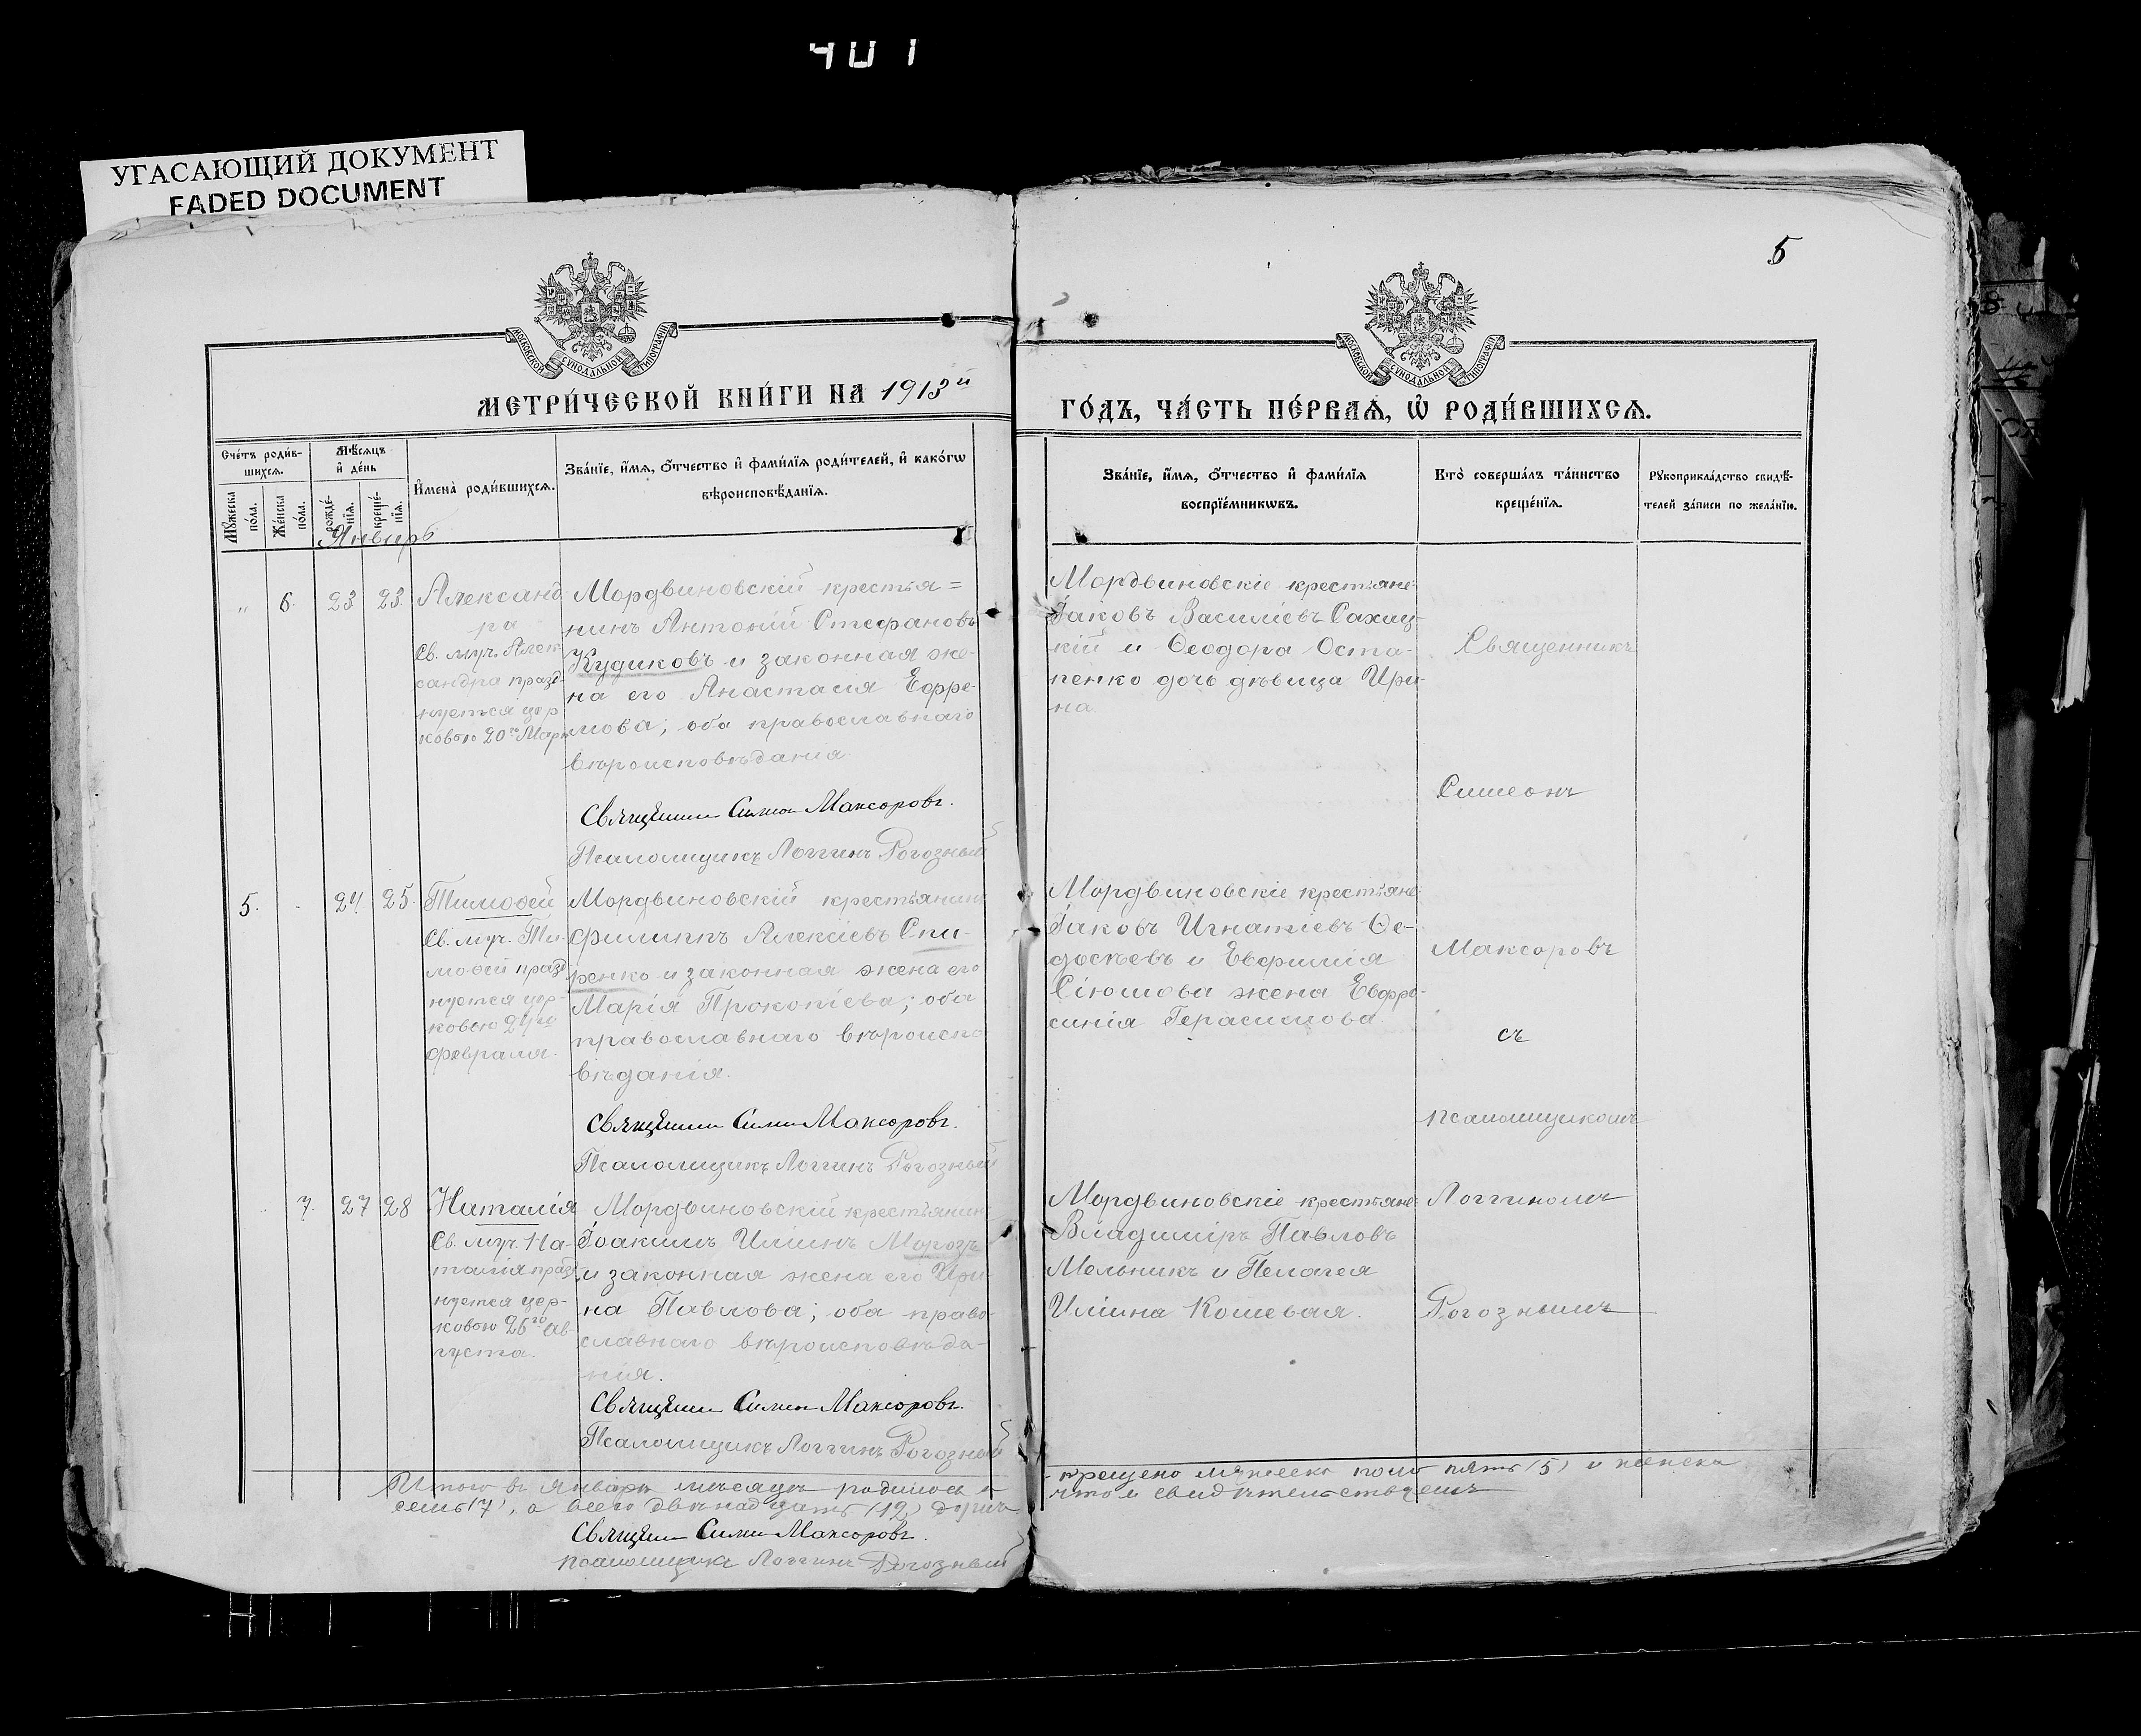 401
УГАСАЮЩИЙ ДОКУМЕНТ
FADED DOCUMENT
5
МОСКОВСКОЙ СѴНОДАЛЬНОЙ ТИПОГРАФІИ
МОСКОВСКОЙ СѴНОДАЛЬНОЙ ТИПОГРАФІИ
МЕТРИ́ЧЕСКОЙ КНИ́ГИ НА 1913й
ГО́ДЪ, ЧА́СТЬ ПЕ́РВАѦ, Ѡ҆ РОДИ́ВШИХСѦ.
Сче́тъ роди́в-
шихсѧ.
Мѣ́сѧцъ
и҆ де́нь
Мꙋ́жеска
по́ла.
Же́нска
по́ла.
рожде́-
нїѧ.
креще́-
нїѧ.
И҆мена̀ роди́вшихсѧ.
Зва́нїе, и҆́мѧ, ѻ҆́тчество и҆ фами́лїѧ роди́телей, и҆ како́гѡ
вѣроисповѣ́данїѧ.
Зва́нїе, и҆́мѧ, ѻ҆́тчество и҆ фами́лїѧ
воспрїе́мникѡвъ.
Кто̀ соверша́лъ та́инство
креще́нїѧ.
Рꙋкоприкла́дство свидѣ́-
телей за́писи по жела́нїю.
Январь
„ 6. 23 23.
Александ
ра
Св. муч. Алек
сандра празд-
нуется цер
ковію 20го Мар
Мордвиновскій крестья=
нинъ Антоній Стефановъ
Кудиковъ и законная же-
на его Анастасія Ефре-
мова; оба православнаго
вѣроисповѣданія.
Священникъ Симеонъ Максоровъ.
Псаломщикъ Логгинъ Рогозный
Мордвиновскіе крестьяне:
Іаковъ Василіевъ Сахац-
кій и Ѳеодора Оста-
пенко дочь дѣвица Ири-
на.
Священникъ
Симеонъ
5. - 24 25.
Тимоѳей
Св. муч. Ти-
моѳей празд-
нуется цер-
ковію 24го
февраля.
Мордвиновскій крестьянинъ
Филиппъ Алексіевъ Спи-
ренко и законная жена его
Марія Прокопіева; оба
православнаго вѣроиспо
вѣданія.
Священникъ Симеонъ Максоровъ.
Псаломщикъ Логгинъ Рогозный
Мордвиновскіе крестьяне:
Іаковъ Игнатіевъ Ѳе-
досѣевъ и Евфимія
жена Евфро-
синія Герасимова.
Максоровъ
съ
псаломщикомъ
7. 27 28
Наталія
Св. муч. На-
талія празд
нуется цер-
ковію 26го Ав-
густа.
Мордвиновскій крестьянинъ
Іоакимъ Иліинъ Морозъ
и законная жена его Ири-
на Павлова; оба право-
славнаго вѣроисповѣда-
нія.
Священникъ Симеонъ Максоровъ.
Псаломщикъ Логгинъ Рогозный
Мордвиновскіе крестьяне:
Владиміръ Павловъ
Мельникъ и Пелагея
Иліина Кошевая.
Логгиномъ
Рогознымъ
Итого въ Январѣ мѣсяцѣ родилось и
крещено мужеска пола пять (5) и женска
семь (7), а всего двѣнадцать (12) душъ
что и свидѣтельствуемъ
Священникъ Симеонъ Максоровъ.
псаломщикъ Логгинъ Рогозный